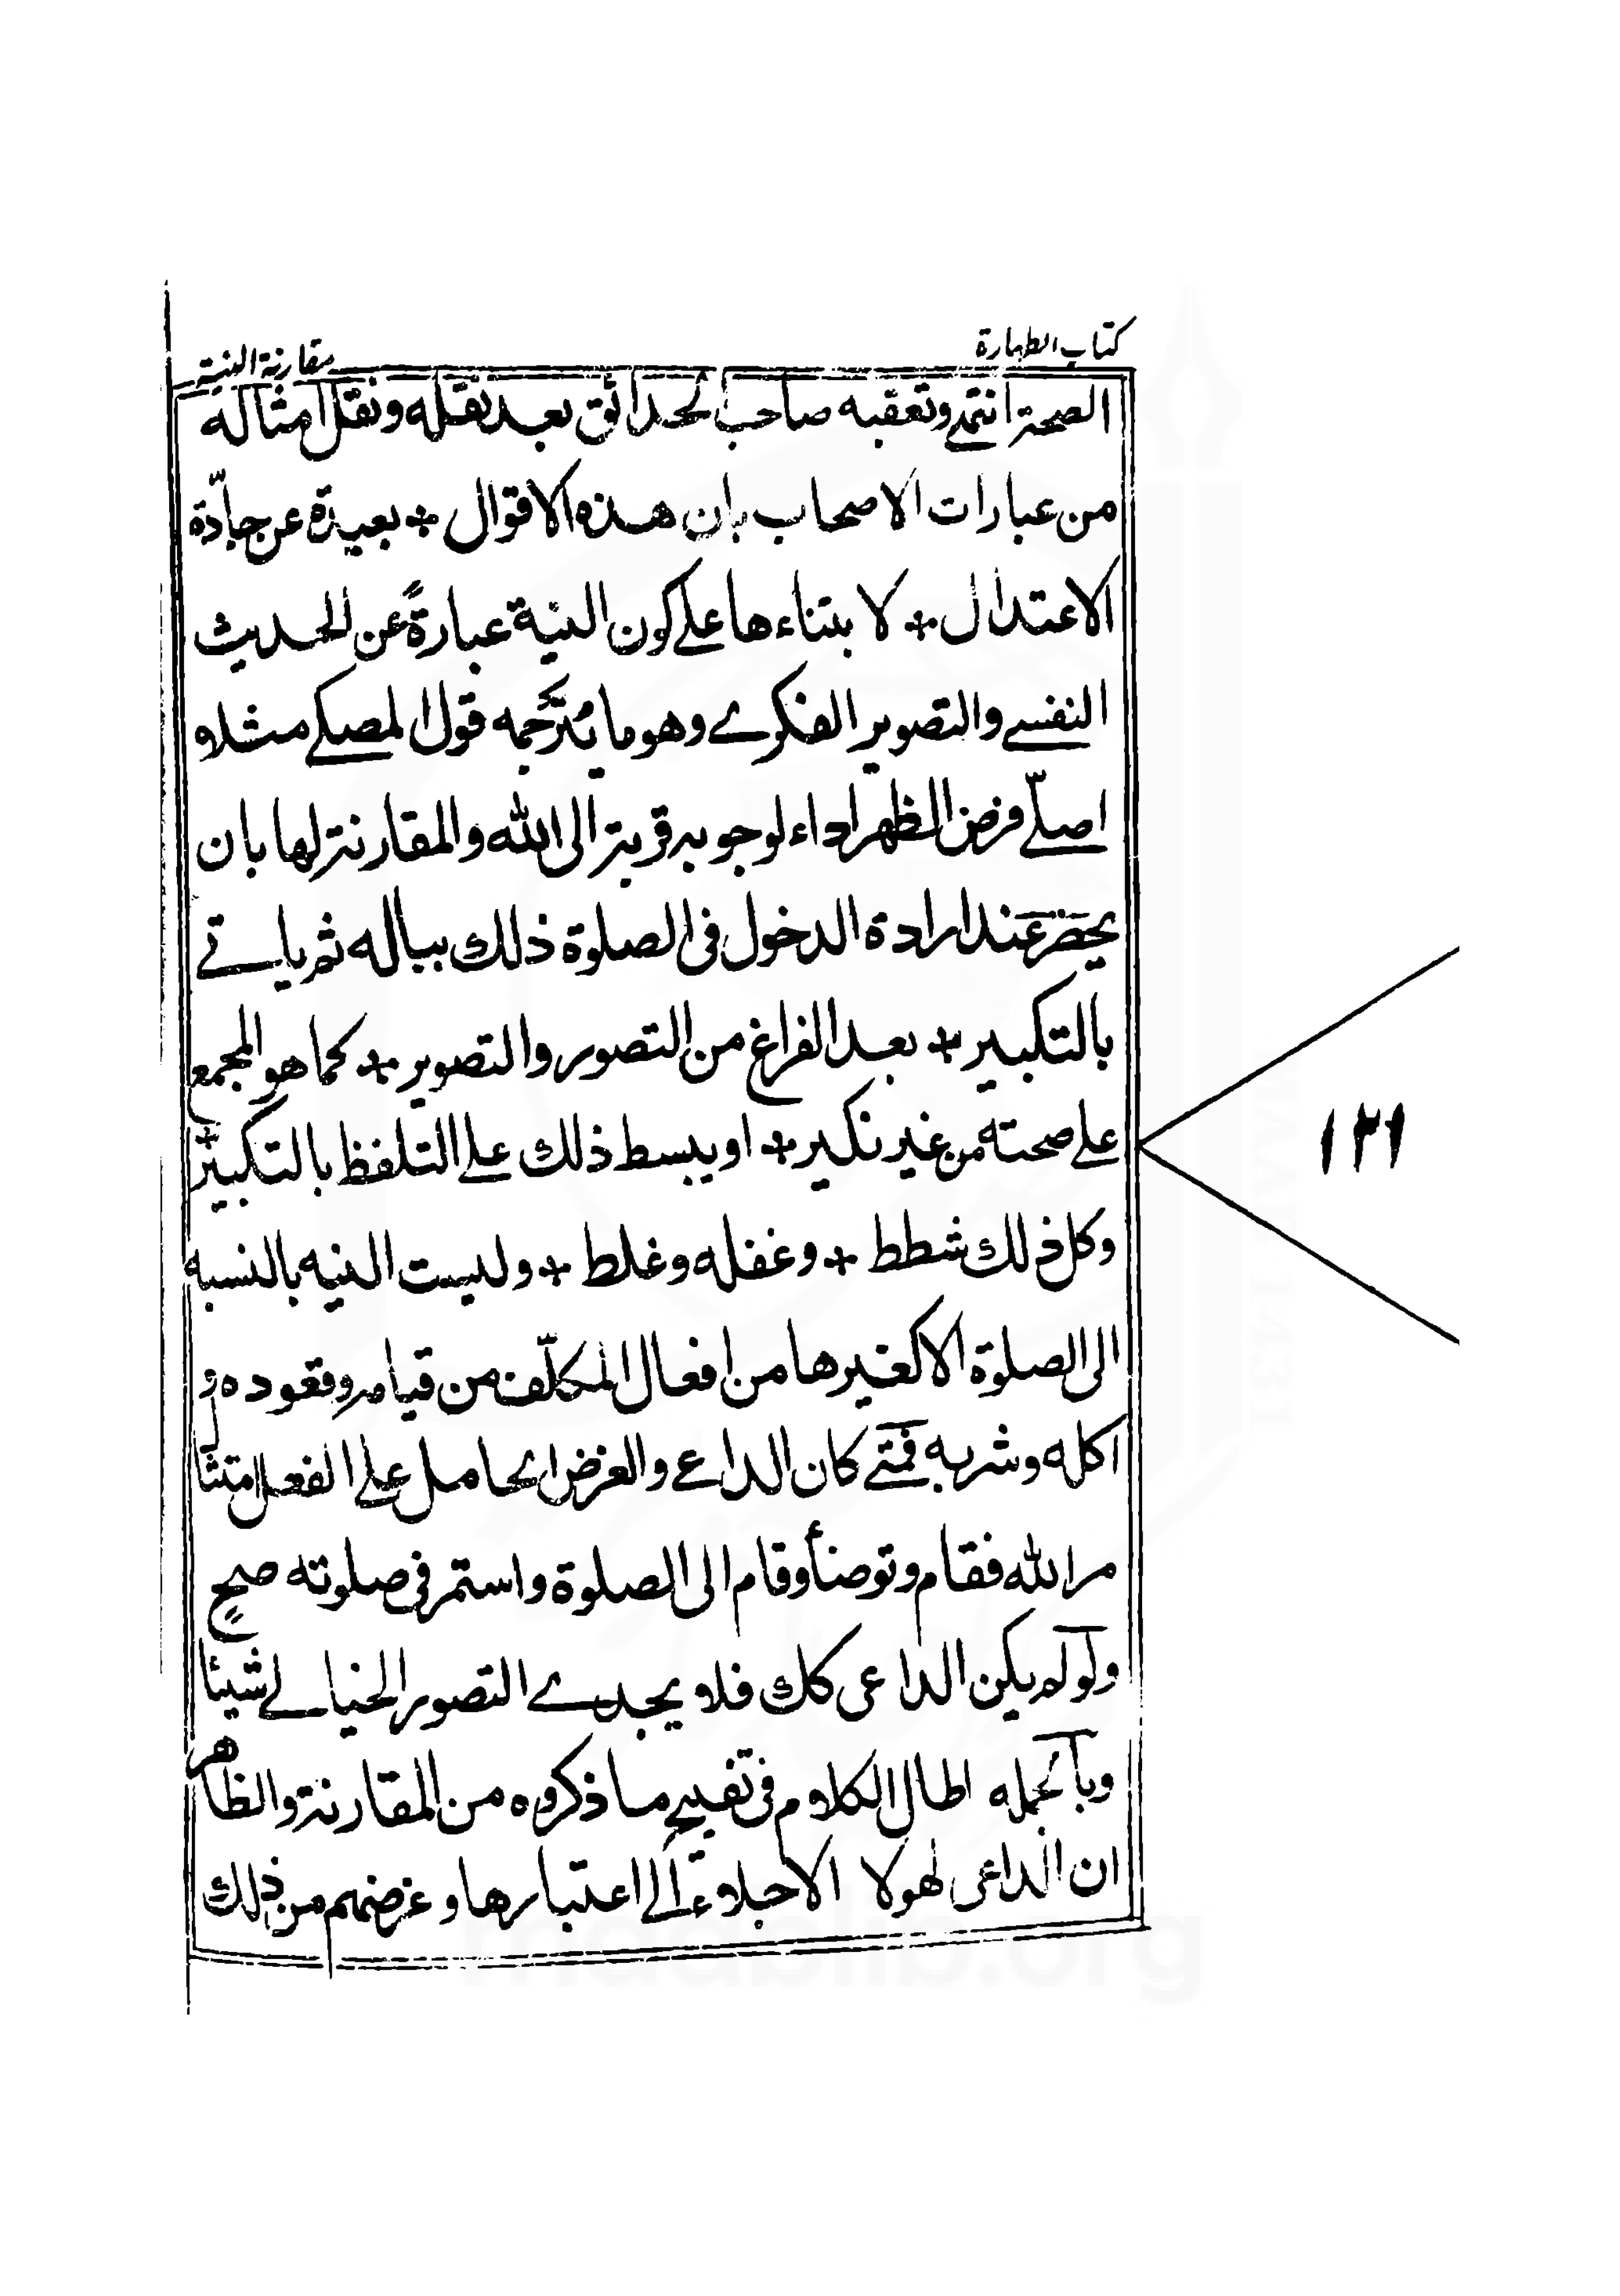 كتاب الطهارة
مقارنة النية
الصحة انتهى وتعقبه صاحب الحدائق بعد نقله ونقل امثاله
من عبارات الاصحاب بان هذه الاقوال + بعيدة عن جادّة
الاعتدال + لا بتناء ها على كون النية عبارةً عن الحديث
النفسي والتصوير الفكري وهو ما يُترجمه قول المصلى مثلا
اصلّى فرض الظهر اداء لوجوبه قربة الى الله والمقارنة لها بان
يحضر عند ارادة الدخول فى الصلوة ذلك بباله ثم ياتى
بالتكبير + بعد الفراغ من التصور والتصوير + كما هو المجمع
على صحته من غير نكير + او يبسط ذلك على التلفظ بالتكبير +
وكل ذلك شطط + وغفله وغلط + وليست النيه بالنسبه
الى الصلوة الا كغيرها من افعال المكلّف من قيامه وقعوده و
اكله وشربه فمتى كان الداعى والغرض الحامل على الفعل امتثا
مر الله فقام وتوضأ وقام الى الصلوة واستمر فى صلوته صح
ولو لم يكن الداعى كك فلا يجدى التصور الخيالى شيئا
وبالجمله اطال الكلام فى تقبيح ما ذكروه من المقارنة والظاهر
ان الداعى لهولا الاجلاء الى اعتبارها وغرضهم من ذلك
١٢١
mablib.org